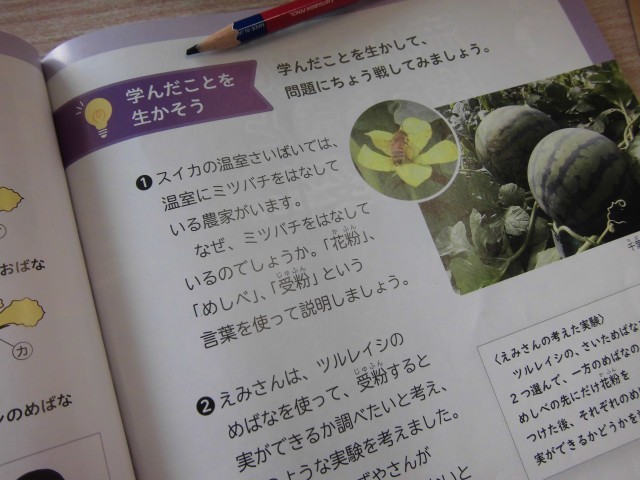 学んだことを
生かそう
学んだことを生かして、
問題にちょう戦してみましょう。
❶スイカの温室さいばいでは、
温室にミツバチをはなして
いる農家がいます。
なぜ、ミツバチをはなして
いるのでしょうか。「花粉」、
「めしべ」、「受粉」という
言葉を使って説明しましょう。
❷えみさんは、ツルレイシの
めばなを使って、受粉すると
実ができるか調べたいと考え、
のような実験を考えました。
ずやさんが
ないと
〈えみさんの考えた実験〉
ツルレイシの、さいためばな
2つ選んで、一方のめばなの
めしべの先にだけ花粉を
つけた後、それぞれのめ
実ができるかどうかを
おばな
カ
のめばな